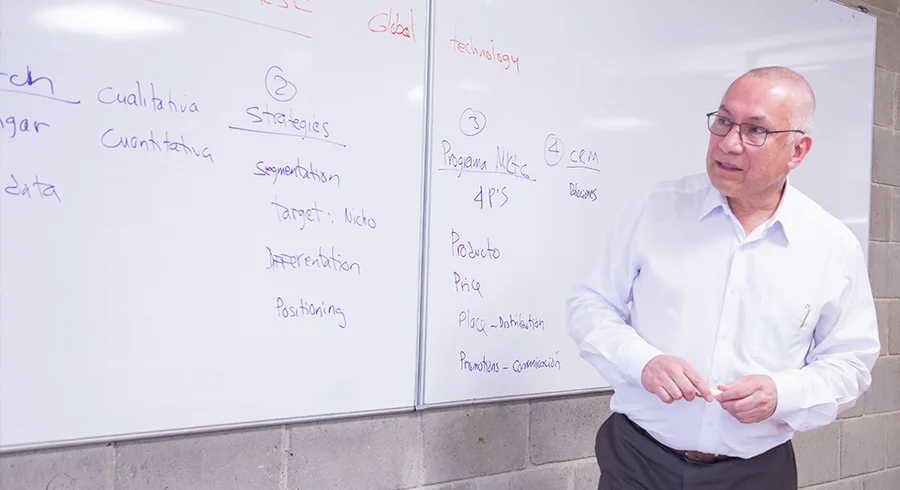 Global technology
Cualitativa
Cuantitativa
data
2
Strategies
Segmentation
target: Nicho
Differentation
Positioning
3
Programa MKTG
4P'S
Producto
Price
Place - Distribution
Promotions - Comunicación
4
CRM